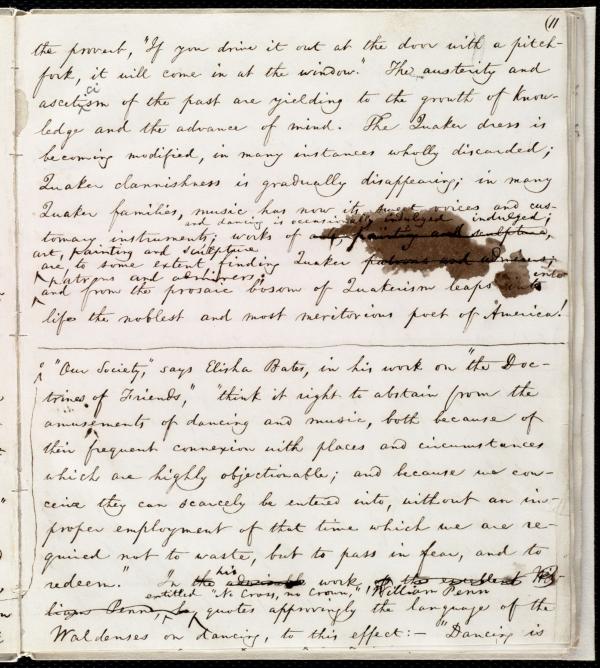 (11
the proverb, "If you drive it out at the door with a pitch-
fork, it will come in at the window." The austerity and
asceticism of the past are yielding to the growth of know-
ledge and the advance of mind. The Quaker dress is
becoming modified, in many instances wholly discarded;
Quaker clannishness is gradually disappearing; in many
Quaker families, music has now its sweet voices and cus-
and dancing is occasionally indulged indulged;
tomary instruments; works of art, painting and sculpture,
art, painting and sculpture
are to some extent finding Quaker patrons and admirers;
patrons and admirers;
and from the prosaic bosom of Quakerism leaps into into
life the noblest and most meritorious poet of America!
"Our Society," says Elisha Bates, in his work on "the Doc-
trines of Friends," "think it right to abstain from the
amusements of dancing and music, both because of
their frequent connexion with places and circumstances
which are highly objectionable; and because we con-
ceive they can scarcely be entered into, without an im-
proper employment of that time which we are re-
quired not to waste, but to pass in fear, and to
redeem." In the his admirable work of the excellent Wil-
entitled "No Cross, no Crown," William Penn
liam Penn, he quotes approvingly the language of the
Waldenses on dancing, to this effect:– "Dancing is